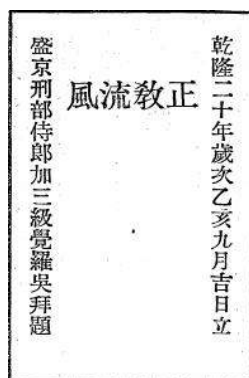 乾隆二十年歲次乙亥九月吉日立
正教流風
盛京刑部侍郎加三級覺羅吳拜題